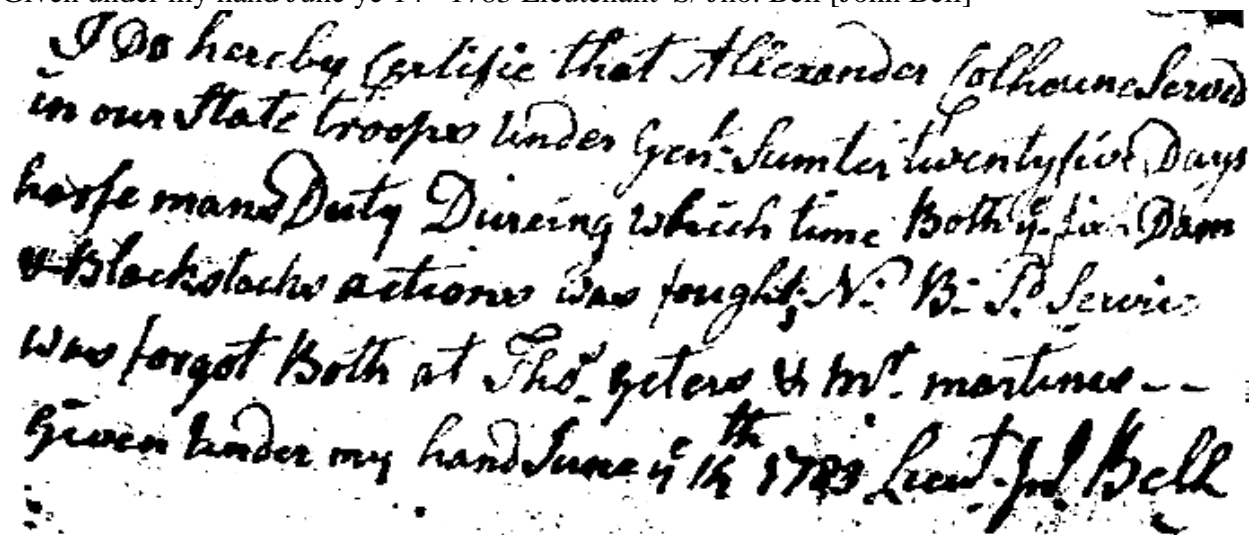 Given under my hand June ye 14th 1783 Lieutenant S/ Jno. Bell [John Bell]
I Do hereby Certifie that Allexander Colhoune Served
in our State troops under Genl. Sumter twentyfive Days
horse mans Duty Dureing which time Both ye fish Dam
& Blackstocks actions was fought; N. B. Sd. Service
was forgot Both at Thos. yeters & Mr. martines --
Given under my hand June ye 14th 1783 Lieut. Jno. Bell